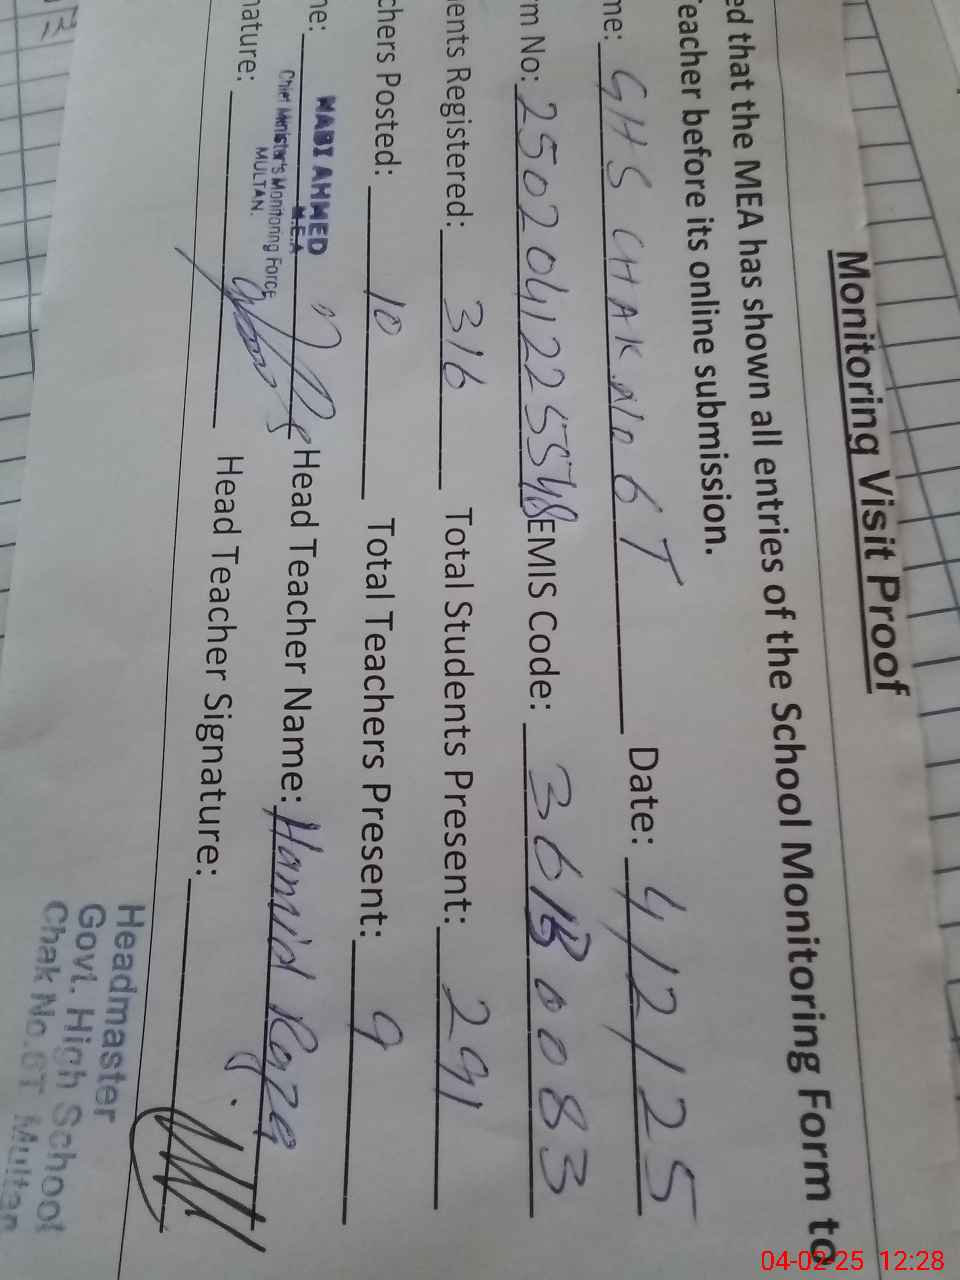 Monitoring Visit Proof
ed that the MEA has shown all entries of the School Monitoring Form to
eacher before its online submission.
me: GHS CHAK No 6T Date: 4/2/25
rm No: 2502041225548 EMIS Code: 36130083
ents Registered: 316 Total Students Present: 291
chers Posted: 10 Total Teachers Present: 9
me: NABI AHMED Head Teacher Name: Hamid Raza
M.E.A
Chief Minister's Monitoring Force
MULTAN.
nature: Head Teacher Signature:
Headmaster
Govt. High School
Chak No.6T Multan
04-02-25 12:28